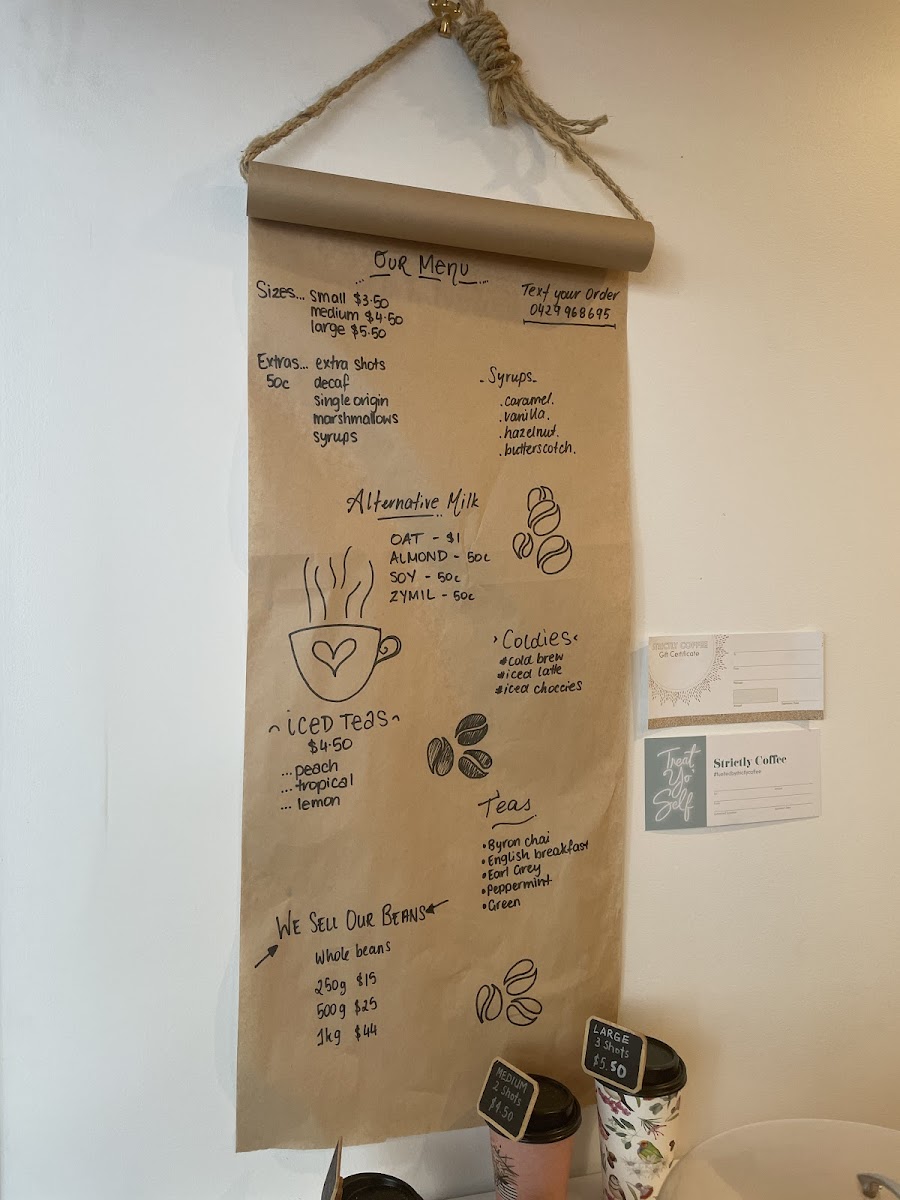 Our Menu
Sizes... small $3.50
medium $4.50
large $5.50
Text your Order
0429 968 695
Extras... extra shots
50c decaf
single origin
marshmallows
syrups
Syrups
caramel.
vanilla.
hazelnut.
butterscotch.
Alternative Milk
OAT - $1
ALMOND - 50c
SOY - 50c
ZYMIL - 50c
Coldies
#cold brew
#iced latte
#iced choccies
ICED TEAS
$4.50
...peach
...tropical
... lemon
Teas
•Byron chai
•English breakfast
•Earl Grey
•Peppermint
•Green
WE SELL OUR BEANS
Whole beans
250g $15
500g $25
1kg $44
STRICTLY COFFEE
Gift Certificate
Treat
Yo'
Self
Strictly Coffee
MEDIUM
2 Shots
$4.50
LARGE
3 Shots
$5.50